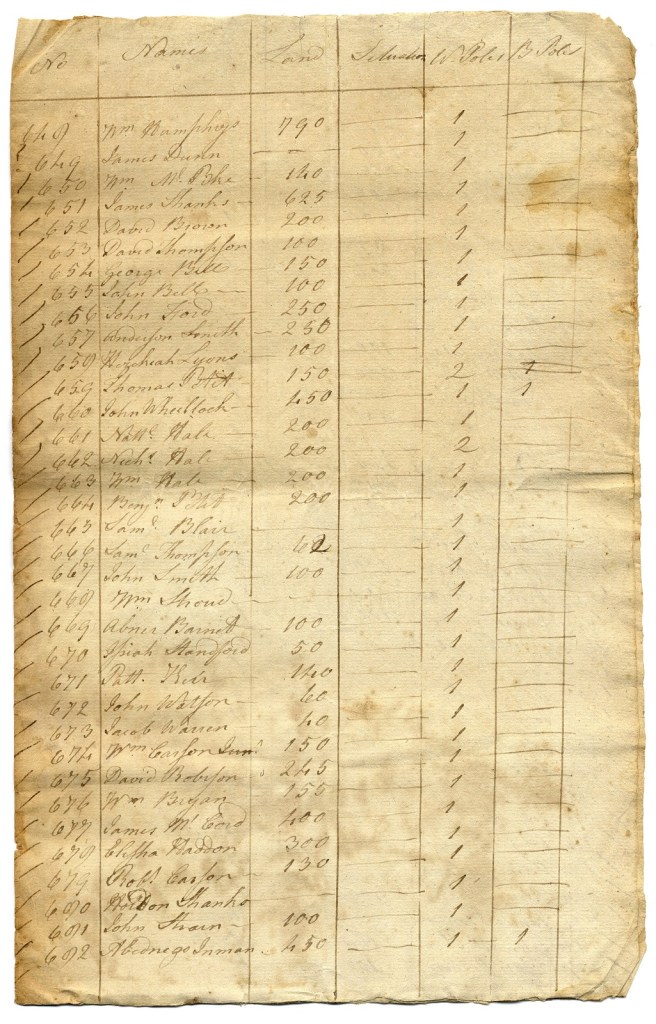 No Names Land Situation W Poles B Poles
648 Wm Humphrys 790 1
649 James Dunn — — 1
650 Wm Mc 140 1
651 James Shanks 625 1
652 David Brown 200 1
653 David Thompson 100 1
654 George Bell 150 1
655 John Bell — 100 1
656 John Ford 250 1
657 Anderson Smith — 250 1
658 Hezekiah Lyons 100 1
659 Thomas 150 2 1
660 John Wheellock 450 1 1
661 Natt. Hale 200 1
662 Nichs. Hale 200 2
663 Wm Hale 200 1
664 Benjn. 200 1
665 Saml. Blair — 1
666 Saml. Thompson 62 1
667 John Smith — 100 1
668 Wm Stroud — — 1
669 Abner Barnet 100 1
670 Standford 50 1
671 Patt. 140 1
672 John Watson — 60 1
673 Jacob Warren 40 1
674 Wm Carson Junr 150 1
675 David Robison 245 1
676 Wm Bryan 155 1
677 James Mc Cord 400 1
678 Elisha Haddon 300 1
679 Robt. Carson — 130 1
680 Shanks 1
681 John Strain — 100 1
682 Abednego Inman 450 1 — 1